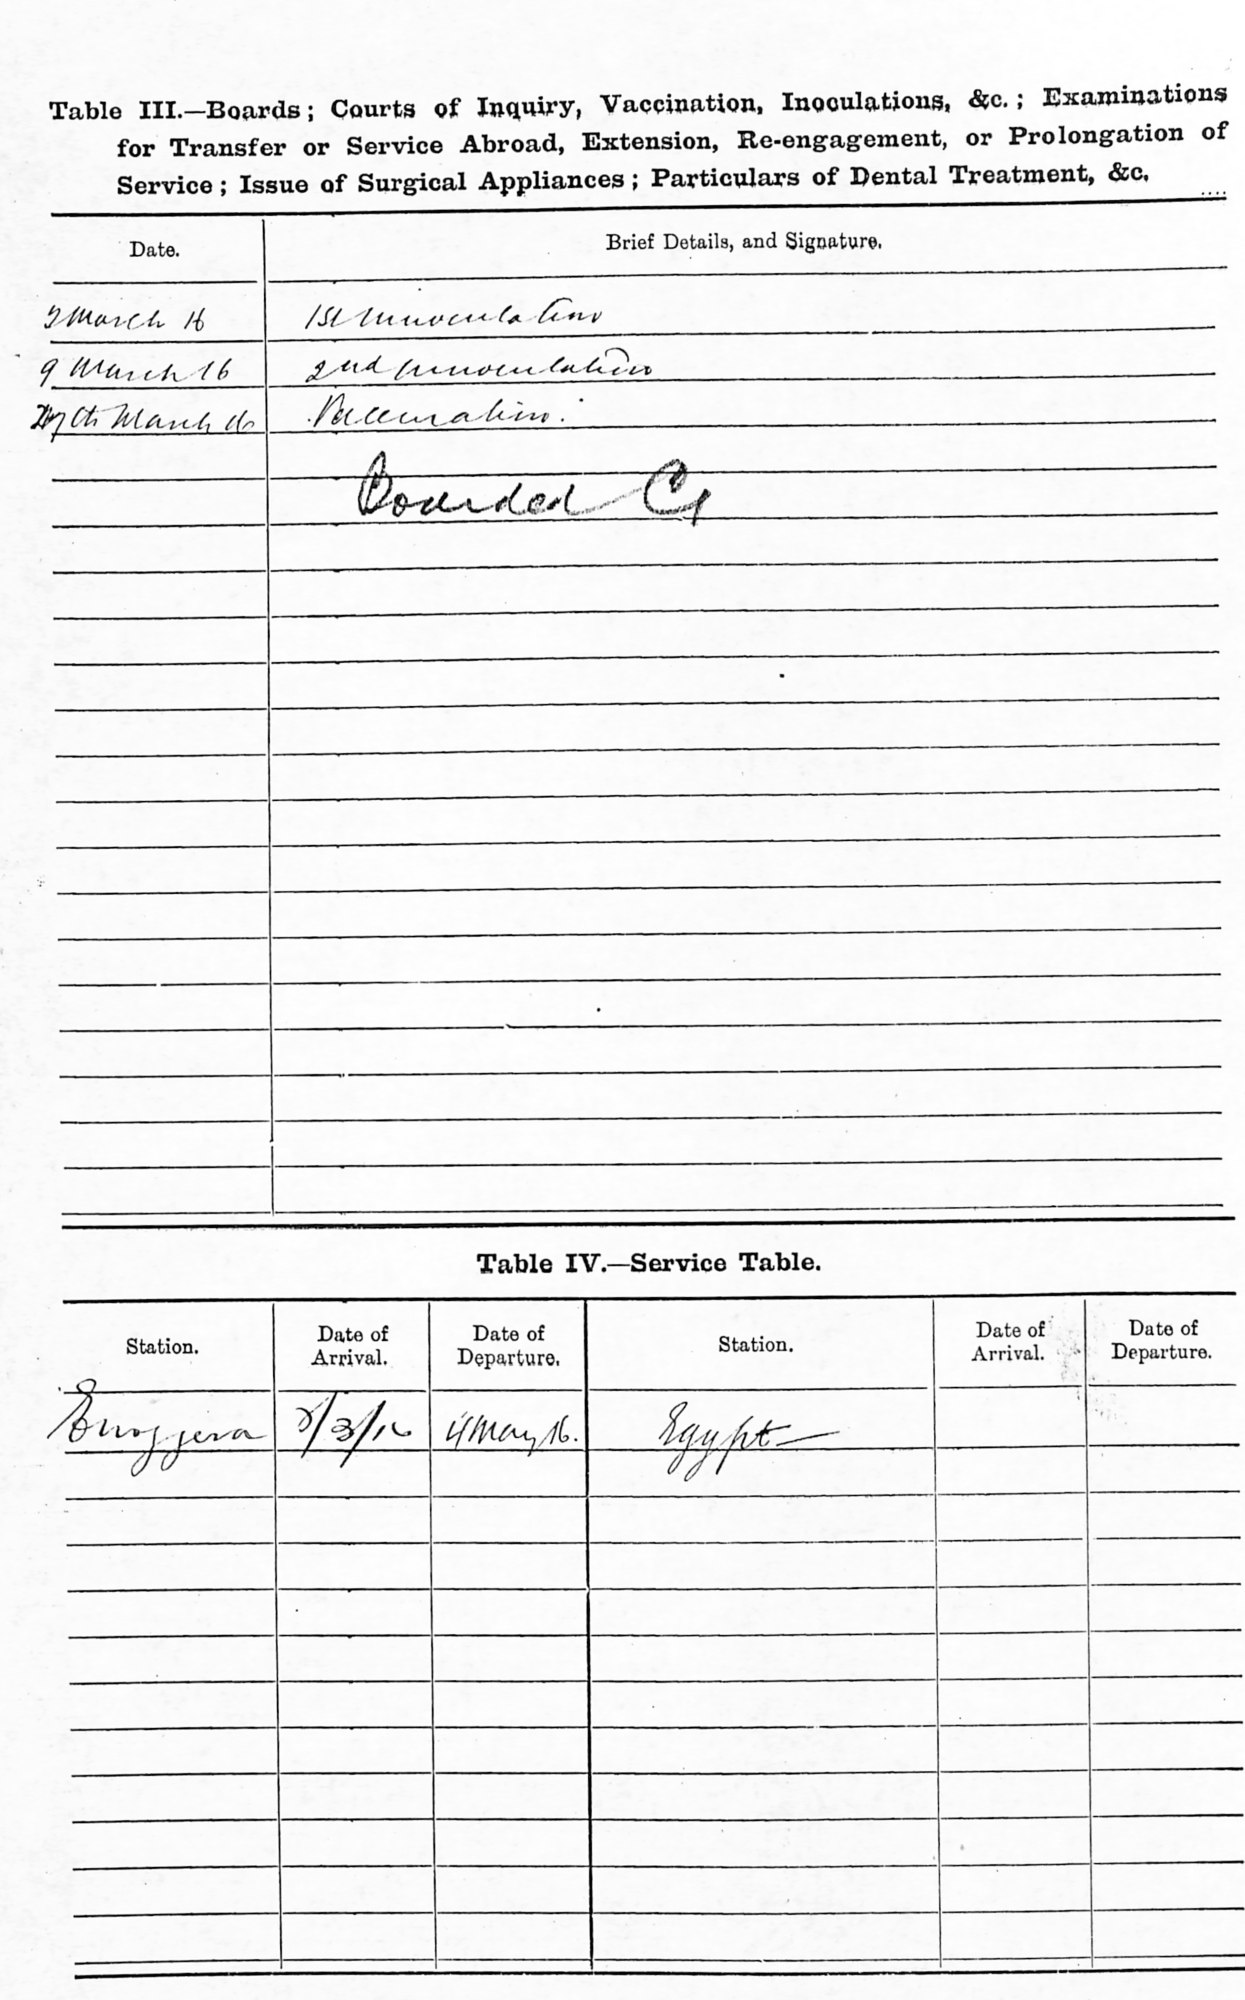 Table III.—Boards; Courts of Inquiry, Vaccination, Inoculations, &c.; Examinations
for Transfer or Service Abroad, Extension, Re-engagement, or Prolongation of
Service; Issue of Surgical Appliances; Particulars of Dental Treatment, &c.
Date. Brief Details, and Signature.
March 16 1st Innoculation
9 March 16 2nd Innoculation
March 16 Vaccination.
Boarded
Table IV.—Service Table.
Station. Date of Arrival. Date of Departure. Station. Date of Arrival. Date of Departure.
Enoggera May 16. Egypt